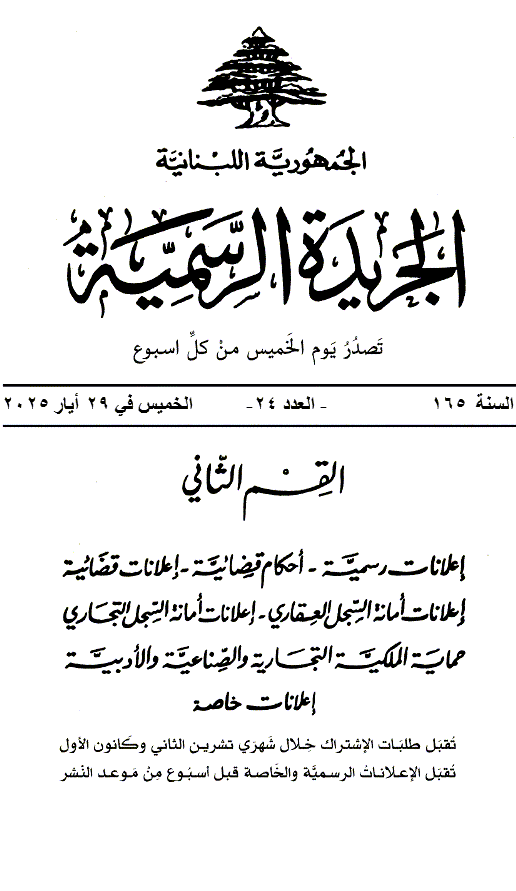 الجمهوريَّة اللبنانيَّة
الجريدة الرسميَّة
تَصدُرُ يَوم الخَميس منْ كلِّ اسبوع
السنة ١٦٥ - العدد ٢٤- الخميس في ٢٩ أيار ٢٠٢٥
القِسْم الثّاني
إعلانات رسميَّة - أحكام قضائيَّة - إعلانات قضائية
إعلانات أمانة السِّجل العقاري - إعلانات أمانة السِّجل التجاري
حماية الملكيَّة التجارية والصِّناعيَّة والأدبيَّة
إعلانات خاصة
تُقبَل طلبَات الإشتراك خِلال شَهرَي تشرين الثاني وكَانون الأول
تُقبَل الإعلاناتُ الرسميَّة والخَاصة قبل أسبُوع مِنْ مَوعد النَشر